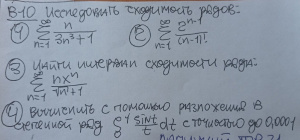 В-10 Исследовать сходимость рядов:
① ∞ Σ n=1 n/(3n³+1) ② ∞ Σ n=1 2ⁿ⁻¹/(n-1)!
③ Найти интервал сходимости ряда:
∞ Σ n=1 nxⁿ/
④ Вычислить с помощью разложения в
степенной ряд sint/t dt с точностью до 0,0001